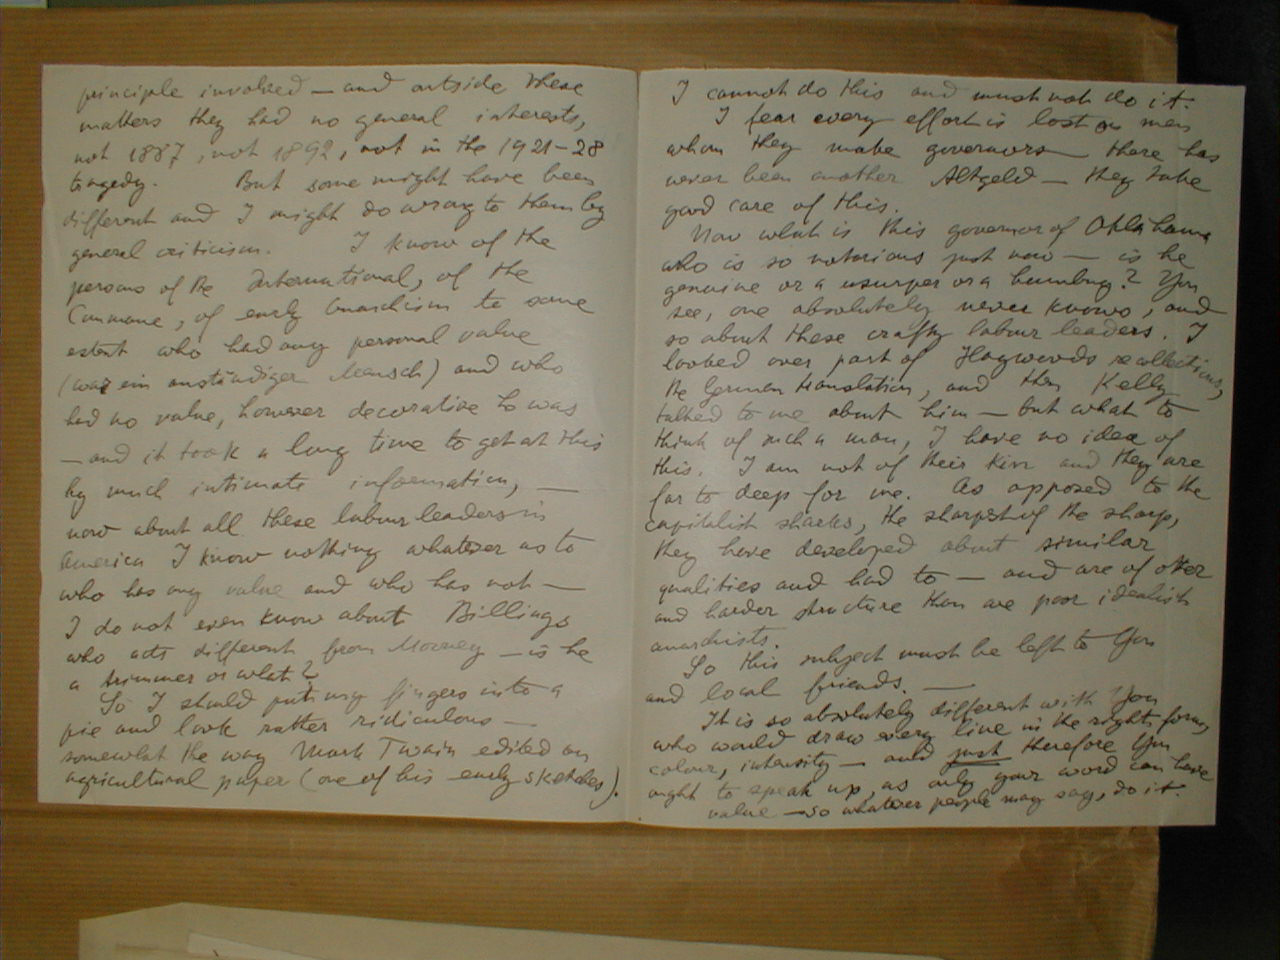 principle involved — and outside these
matters they had no general interests,
not 1887, not 1892, not in the 1921-28
tragedy. But some might have been
different and I might do wrong to them by
general criticism. I know of the
persons of the International, of the
Commune, of early Anarchism to some
extent who had any personal value
(war ein anständiger Mensch) and who
had no value, however decorative he was
— and it took a long time to get at this
by much intimate information, —
now about all these labour leaders in
America I know nothing whatever as to
who has any value and who has not —
I do not even know about Billings
who acts different from Mooney — is he
a trimmer or what?
So I should put my fingers into a
pie and look rather ridiculous —
somewhat the way Mark Twain edited an
agricultural paper (one of his early sketches).
I cannot do this and must not do it.
I fear every effort is lost on men
whom they make governors — there has
never been another Altgeld — they take
good care of this.
Now what is this governor of Oklahama
who is so notorious just now — is he
genuine or a usurper or a humbug? You
see, one absolutely never knows, and
so about these crafty labour leaders. I
looked over part of Haywoods recollections,
the German translation, and then Kelly
talked to me about him — but what to
think of such a man, I have no idea of
this. I am not of their kin and they are
far to deep for me. As opposed to the
capitalist sharks, the sharpest of the sharp,
they have developed about similar
qualities and had to — and are of other
and harder structure than are poor idealist
anarchists.
So this subject must be left to You
and local friends. —
It is so absolutely different with You
who would draw every line in the right form,
colour, intensity — and just therefore You
ought to speak up, as only your word can have
value — so whatever people may say, do it.